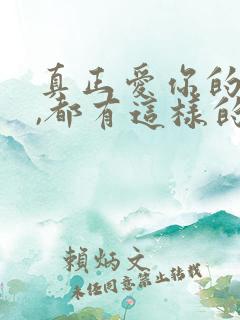 真正愛你的
,都有這樣的
賴炳文
未經同意禁止轉載